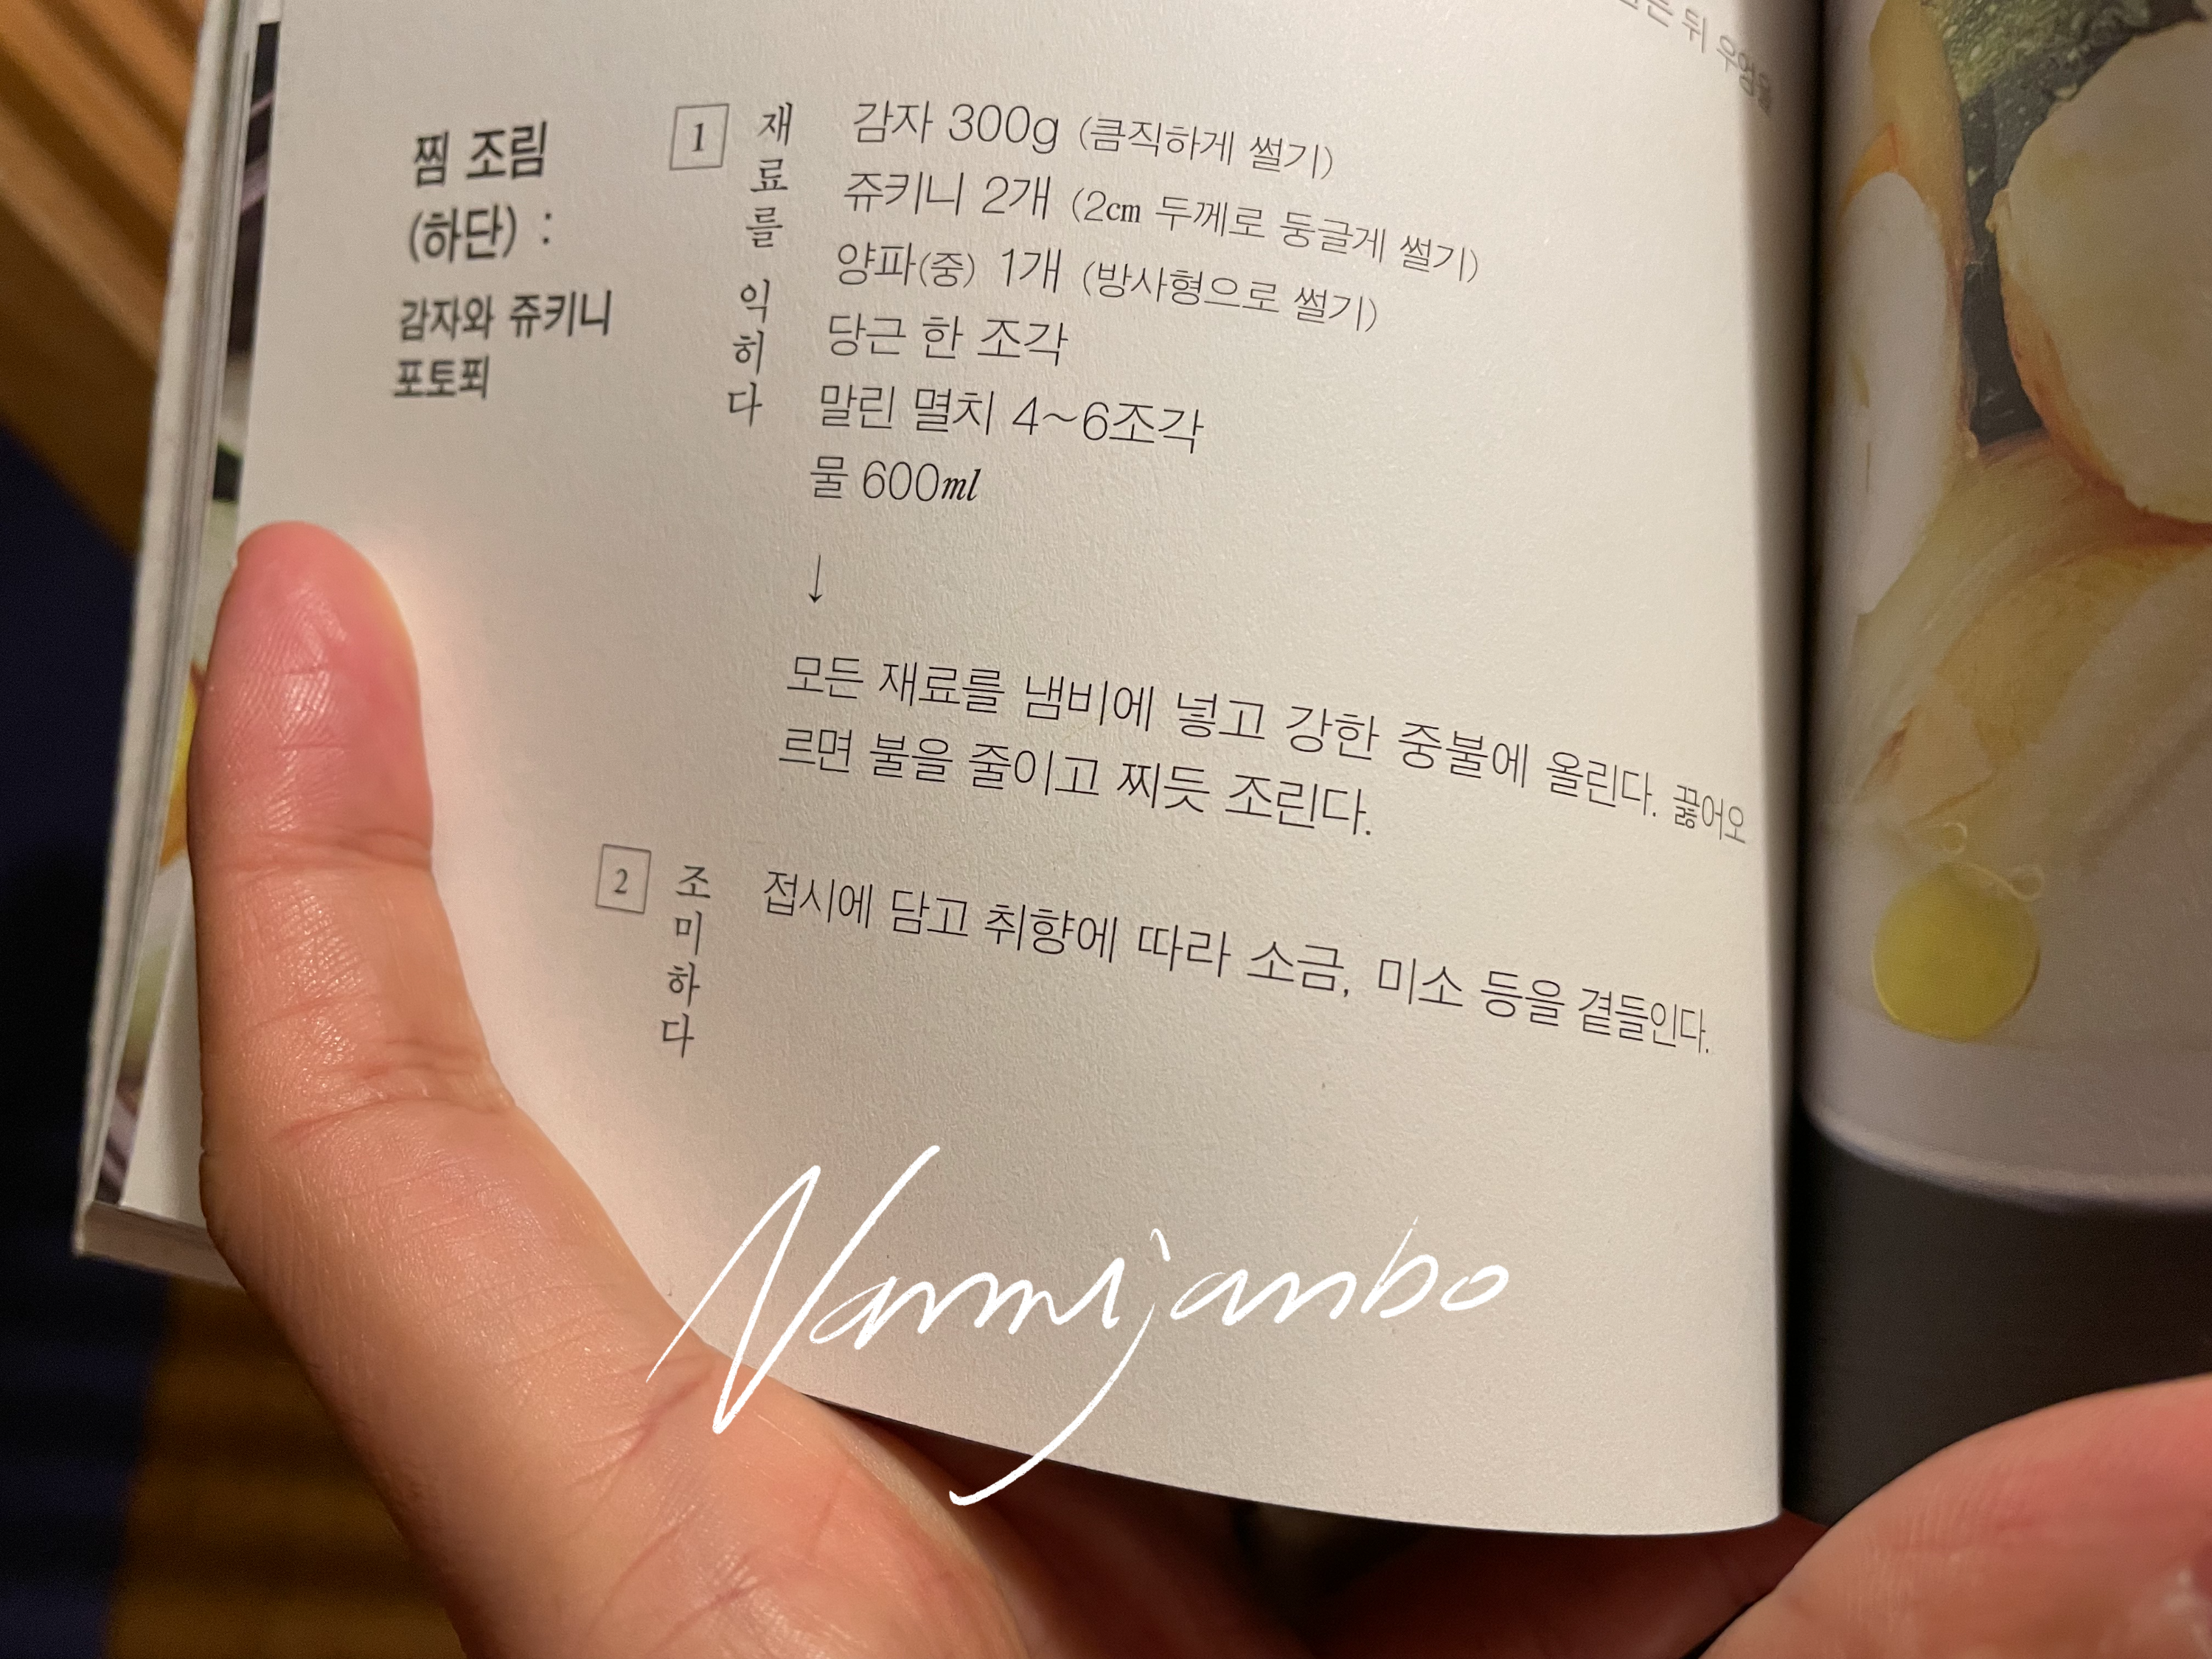 뒤 우엉을
찜 조림
(하단) :
감자와 쥬키니
포토푀
1 재료를 익히다
감자 300g (큼직하게 썰기)
쥬키니 2개 (2cm 두께로 둥글게 썰기)
양파(중) 1개 (방사형으로 썰기)
당근 한 조각
말린 멸치 4~6조각
물 600ml
↓
모든 재료를 냄비에 넣고 강한 중불에 올린다. 끓어오
르면 불을 줄이고 찌듯 조린다.
2 조미하다
접시에 담고 취향에 따라 소금, 미소 등을 곁들인다.
Nammijanbo